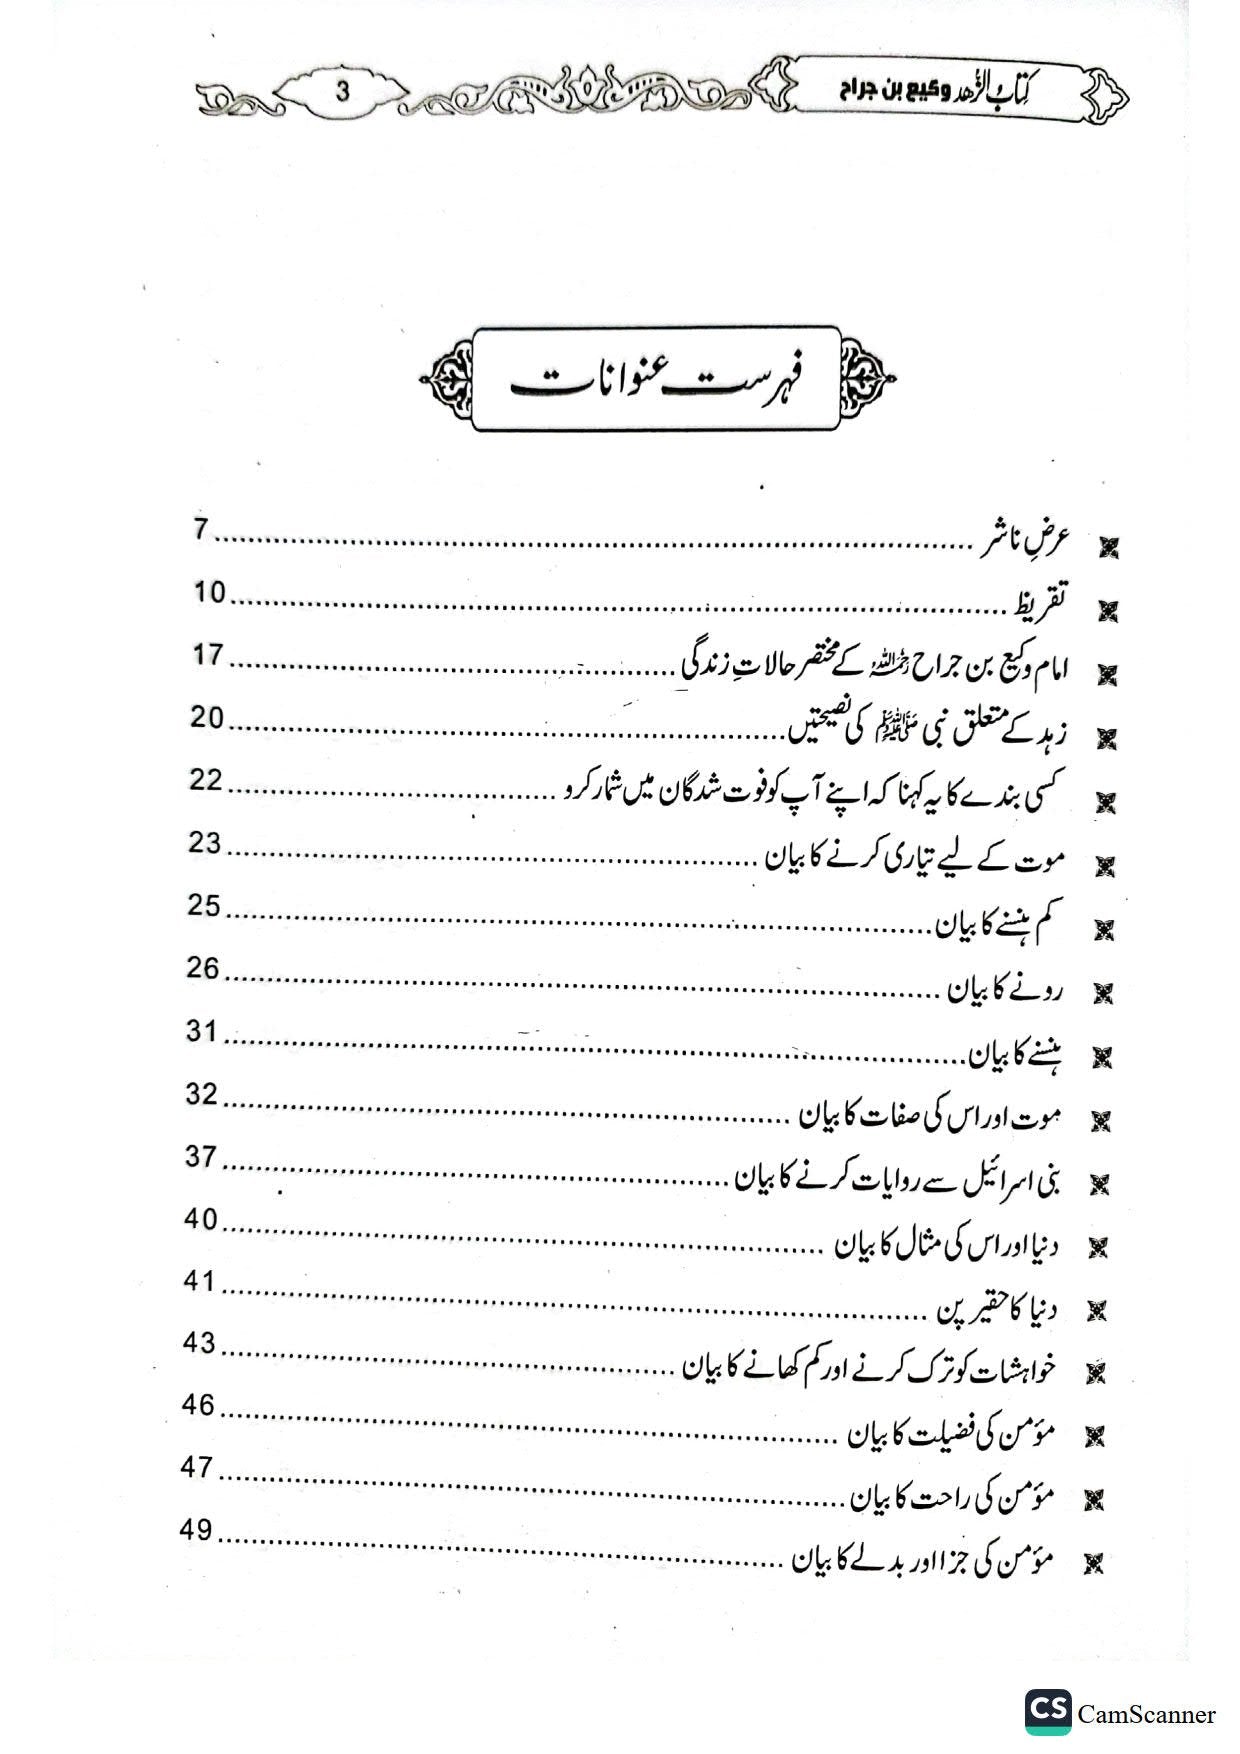 کتاب الزُّهد وکیع بن جراح 3
فہرست عنوانات
عرضِ ناشر ........ 7
تقریظ ........ 10
امام وکیع بن جراح رحمہ اللہ کے مختصر حالاتِ زندگی ........ 17
زہد کے متعلق نبی ﷺ کی نصیحتیں ........ 20
کسی بندے کا یہ کہنا کہ اپنے آپ کو فوت شدگان میں شمار کرو ........ 22
موت کے لیے تیاری کرنے کا بیان ........ 23
کم ہنسنے کا بیان ........ 25
رونے کا بیان ........ 26
ہنسنے کا بیان ........ 31
موت اور اس کی صفات کا بیان ........ 32
بنی اسرائیل سے روایات کرنے کا بیان ........ 37
دنیا اور اس کی مثال کا بیان ........ 40
دنیا کا حقیر پن ........ 41
خواہشات کو ترک کرنے اور کم کھانے کا بیان ........ 43
مؤمن کی فضیلت کا بیان ........ 46
مؤمن کی راحت کا بیان ........ 47
مؤمن کی جزا اور بدلے کا بیان ........ 49
CS CamScanner